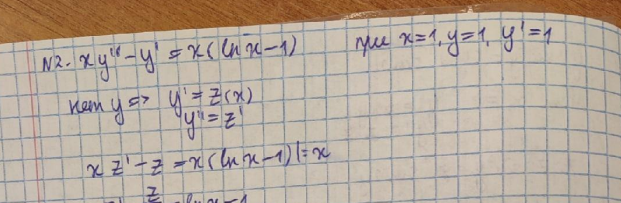 N2. xy'' - y' = x(ln x - 1) при x=1, y=1, y'=1
нет y => y' = z(x)
y'' = z'
x z' - z = x(ln x - 1) |= x